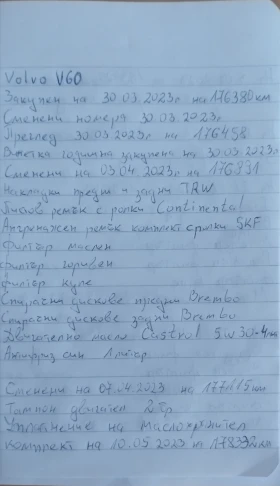 Volvo V60
Закупен на 30.03.2023г на 176380км
Сменени номера 30.03.2023г
Преглед 30.03.2023г на 176458
Винетка годишна закупена на 30.03.2023г
Сменени на 03.04.2023г на 176931
Накладки предни и задни TRW
Пистов ремък с ролки Continental
Ангренажен ремък комплект с ролки SKF
Филтър маслен
филтър горивен
филтър купе
Спирачни дискове предни Brembo
Спирачни дискове задни Brembo
Двигателно масло Castrol 5w30
Антифриз син 1 литър
Сменени на 07.04.2023 на
Тампон двигател 2бр
Уплътнение на маслоохладител
Комплект на 10.05.2023 на